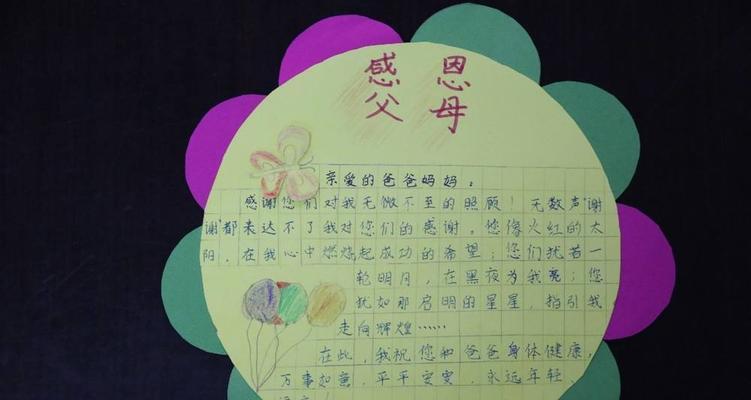 感恩
父母
亲爱的爸爸妈妈：
感谢您们对我无微不至的照顾！无数声“谢
谢”都表达不了我对您们的感谢。您像火红的太
阳，在我心中燃烧起成功的希望；您们犹若一
轮明月，在黑夜为我亮；您
犹如那启明的星星，指引我
走向辉煌……
在此，我祝您和爸爸身体健康，
万事如意，平平安安，永远年轻、